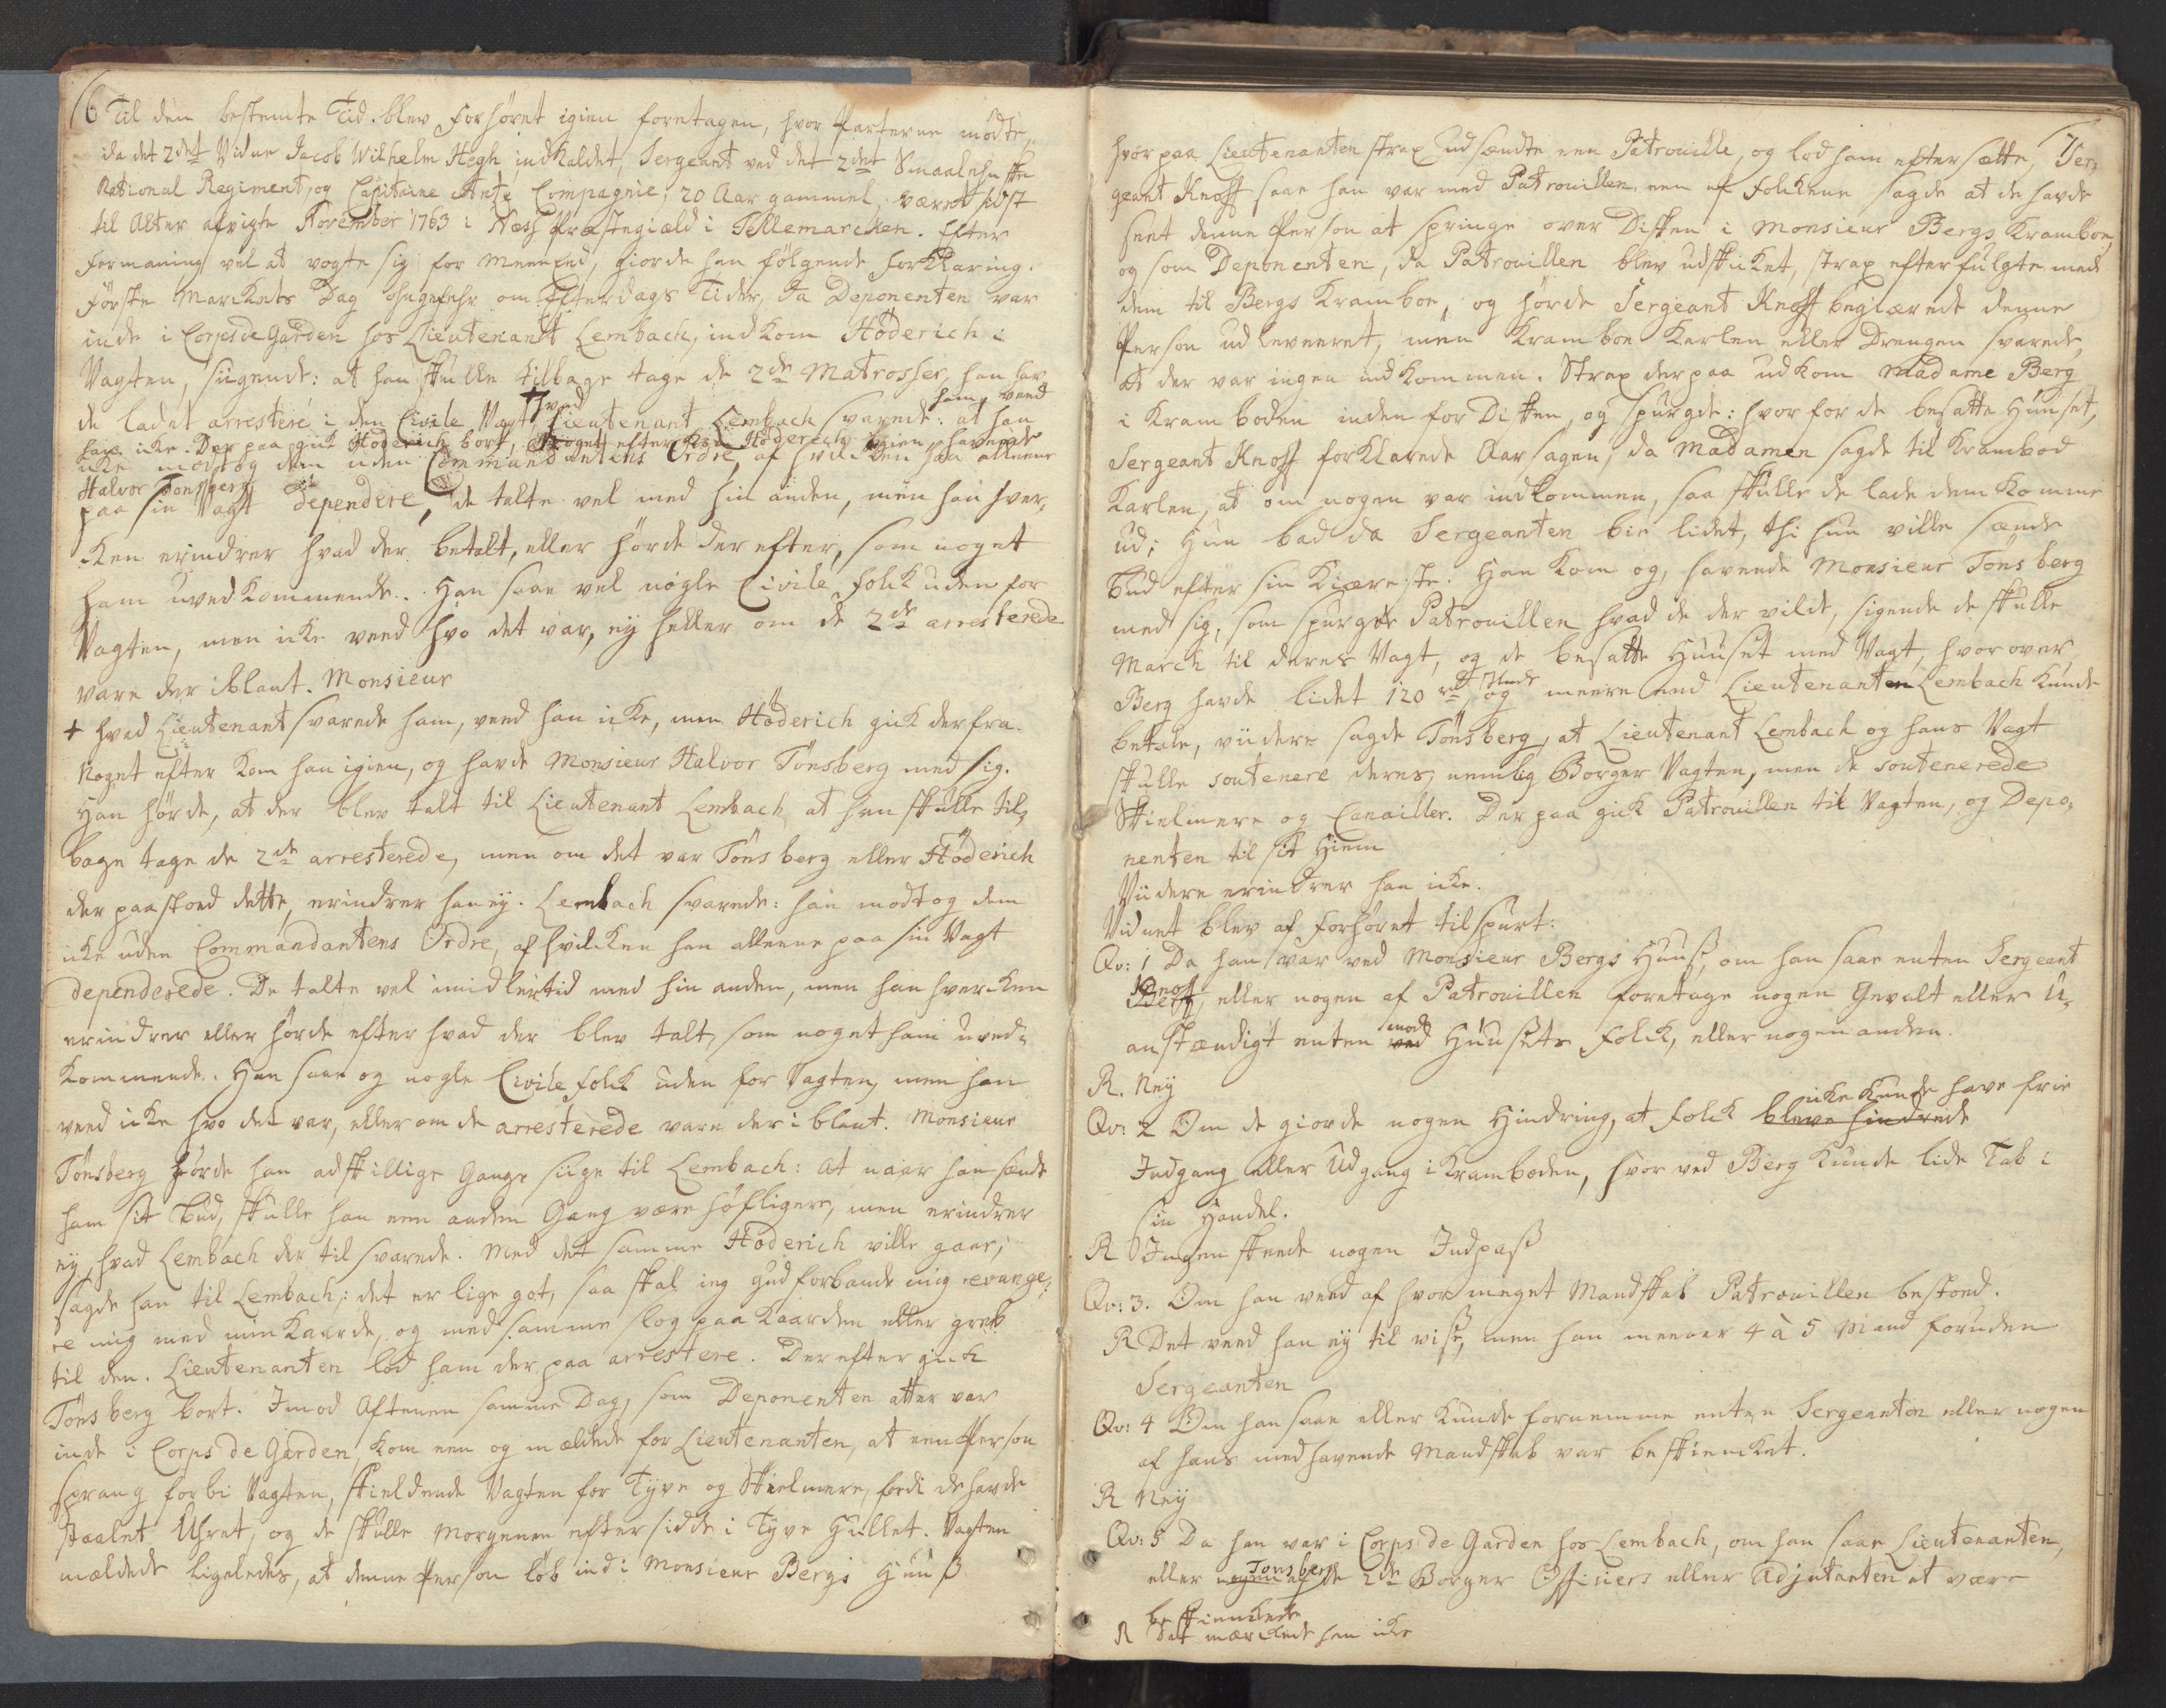 6 Til den bestemte Tid blev Forhøret igien foretagen, hvor Parterne mødte,
da det 2det Vidne Jacob Wilhelm Hegh indkaldet, Sergeant ved det 2det Smaalehnske
National Regiment, og Capitaine Compagnie, 20 Aar gammel, været sidst
til Alter afvigte November 1763 i Næss Præstegield i Tellemarcken. Efter
Formaning vel at vogte sig for Meeneed, giorde han følgende Forklaring.
Første Marckets Dag ohngefehr om Efterdags Tider, da Deponenten var
inde i Corps de Garden hos Lieutenant Lembach, indkom Höderich i
Vagten, siigende: at han skulle tilbage tage de 2de Matrosser, han hav-
de ladet arrestere i den Civile Vagt, † hvad Lieutenant Lembach svarede: at han ham, veed
han icke. Der paa gick Höderich bort, Noget efter kom Höderich igien havende
icke modtog dem uden Commandantens Ordre, af hvilcken han alleene
Halvor Tonsberg
paa sin Vagt dependere, de talte vel med hin anden, men han hver-
cken erindrer hvad der betalt, eller hørde der efter, som noget
ham uvedkommende. Han saae vel nogle Civile Folck uden for
Vagten, men icke veed hvo det var, ey heller om de 2de arresterede
vare der iblant. Monsieur
† hvad Lieutenant svarede ham, veed han icke, men Höderich gick derfra.
Noget efter kom han igien, og havde Monsieur Halvor Tönsberg med sig.
Han hørde, at der blev talt til Lieutenant Lembach, at han skulle til-
bage tage de 2de arresterede, men om det var Tönsberg eller Höderich
der paastoed dette, erindrer han ey. Lembach svarede: han modtog dem
icke uden Commandantens Ordre, af hvilcken han alleene paa sin Vagt
dependerede. De talte vel imidlertid med hin anden, men han hvercken
erindrer eller hørde efter hvad der blev talt, som noget ham uved-
kommende. Han saae og nogle Civile Folck uden for Vagten, men han
veed icke hvo det var, eller om de arresterede vare der iblant. Monsieur
Tönsberg hørde han adskillige Gange siige til Lembach: at naar han sendte
ham sit Bud, skulle han een anden Gang være høfligere, men erindrer
ey, hvad Lembach der til svarede. Med det samme Höderich ville gaae,
sagde han til Lembach: det er lige got, saa skal ieg Gud forbande mig revange-
re mig med min Kaarde, og med samme slog paa Kaarden eller greb
til den. Lieutenanten lod ham der paa arrestere. Der efter gick
Tönsberg bort. Imod Aftenen samme Dag, som Deponenten atter var
inde i Corps de Garden, kom een og meldede for Lieutenanten, at een Person
sprang forbi Vagten, skieldende Vagten for Tyve og Skielmere, fordi de havde
staalet Uhret, og de skulle Morgenen efter sidde i Tyve Hullet. Vagten
meldede ligeledes, at denne Person løb ind i Monsieur Bergs Huus

7
hvorpaa Lieutenanten strax udsendte een Patrouille, og lod ham eftersætte, Ser-
geant Knoff saae han var med Patrouillen, een af Folckene sagde at de havde
seet denne Person at springe over Disken i Monsieur Bergs Kramboe,
og som Deponenten, da Patrouillen blev udskicket, strax efterfulgte med
dem til Bergs Kramboe, og hørde Sergeant Knoff begiærede denne
Person udleveret, men Kramboe Karlen eller Drengen svarede,
at der var ingen indkommen. Strax derpaa udkom Madame Berg
i Kramboden inden for Disken, og spurgde: hvor for de besatte Huuset,
Sergeant Knoff forklarede Aarsagen, da Madamen sagde til Krambod
Karlen, at om nogen var indkommen, saa skulle de lade dem komme
ud; Hun bad da Sergeanten bie lidet, thi hun ville sænde
Bud efter sin Kiæreste. Han kom og, havende Monsieur Tönsberg
med sig, som spurgte Patrouillen hvad de der vilde, sigende de skulle
March til deres Vagt, og de besatte Huuset med Vagt, hvor over
Berg havde lidet 120 rd Skade og meere end Lieutenanten Lembach kunde
betale, viidere sagde Tönsberg, at Lieutenant Lembach og hans Vagt
skulle soutenere deres, nemlig Borger Vagten, men de soutenerede
Skielmere og Canailler. Der paa gick Patrouillen til Vagten, og Depo-
nenten til sit Hiem
Viidere erindrer han icke.
Vidnet blev af Forhøret tilspurt:
Qv: 1 Da han var ved Monsieur Bergs Huus, om han saae enten Sergeant
Knoff, eller nogen af Patrouillen foretage nogen Gevalt eller U-
anstændigt enten ved mod Huusets Folck, eller nogen anden.
R. Ney
Qv: 2 Om de giorde nogen Hindring, at Folck bleve hindrede icke kunde have frie
Indgang eller Udgang i Kramboden, hvor ved Berg kunde lide Tab i
sin Handel.
R Ingen skeede nogen Indpass
Qv: 3. Om han veed af hvor meget Mandskab Patrouillen bestoed.
R Det veed han ey til visse, men han meener 4 à 5 Mand foruden
Sergeanten
Qv: 4 Om han saae eller kunde fornemme enten Sergeanten eller nogen
af hans medhavende Mandskab var beskiencket.
R Ney
Qv: 5 Da han var i Corps de Garden hos Lembach, om han saae Lieutenanten,
eller nogen af de Tonsberg 2de Borger Officiers eller Adjutanten at være
beskienckede
R Det mærckede han icke